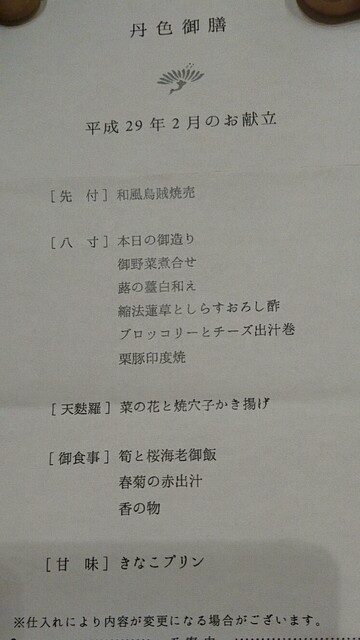 丹色御膳
平成29年2月のお献立
[先 付] 和風烏賊焼売
[八 寸] 本日の御造り
御野菜煮合せ
蕗の薹白和え
縮法蓮草としらすおろし酢
ブロッコリーとチーズ出汁巻
栗豚印度焼
[天麩羅] 菜の花と焼穴子かき揚げ
[御食事] 筍と桜海老御飯
春菊の赤出汁
香の物
[甘 味] きなこプリン
※仕入れにより内容が変更になる場合がございます。